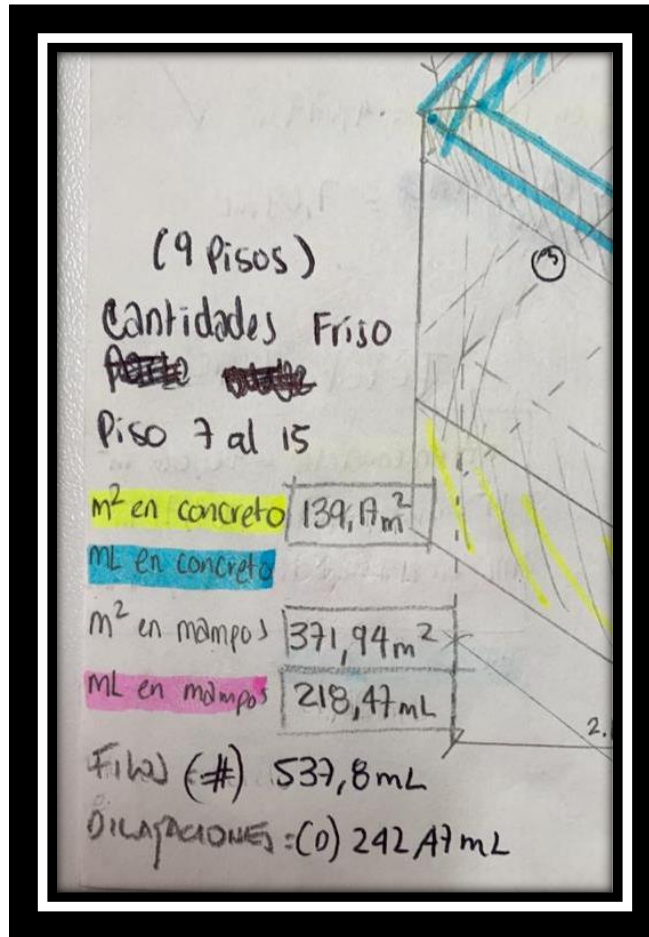 (9 Pisos)
Cantidades Friso
Piso 7 al 15
m² en concreto 139,17m²
mL en concreto
m² en mampos 371,94m²
mL en mampos 218,47mL
Filos (#) 537,8mL
DILATACIONES=(D) 242,47mL
2.